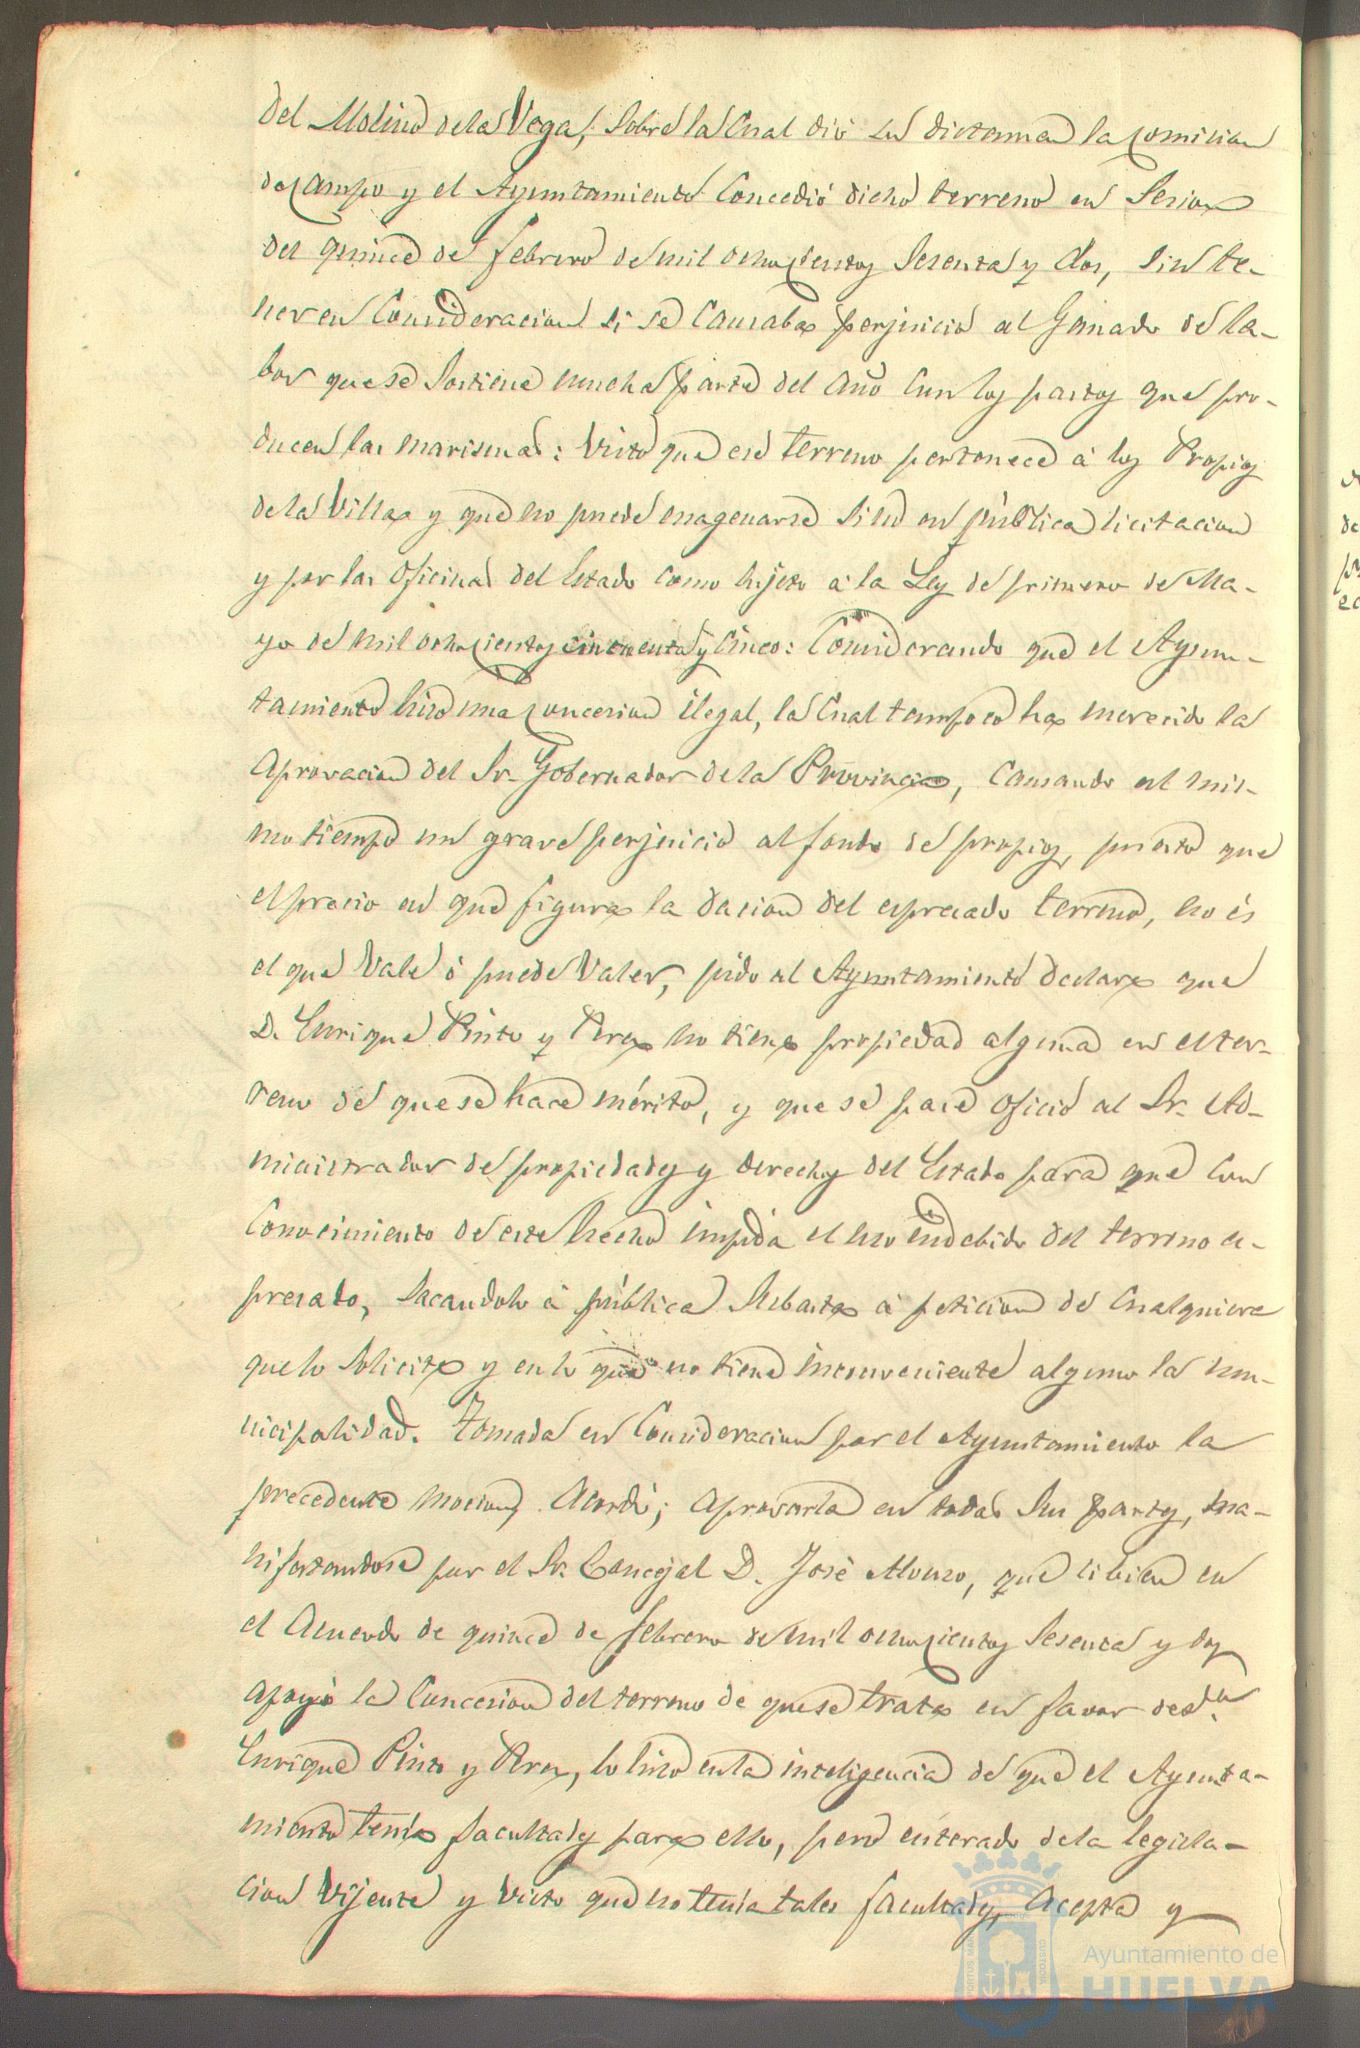 del Molino de la Vega, sobre la cual dió su dictamen la comision
de campo y el Ayuntamiento concedió dicho terreno en Sesion
del quince de febrero de mil ochocientos sesenta y dos, sin te-
ner en consideracion si se causaba perjuicio al Ganado de la-
bor que se sostiene mucha parte del año con los pastos que pro-
ducen las marismas: Visto que ese terreno pertenece á los Propios
de la Villa y que no puede enagenarse sino en pública licitacion
y por las oficinas del Estado como sujeto á la Ley de primero de Ma-
yo de mil ochocientos cincuenta y cinco: Considerando que el Ayun-
tamiento hizo una concesion ilegal, la cual tampoco ha merecido la
aprovacion del Sr. Gobernador de la Provincia, causando al mis-
mo tiempo un grave perjuicio al fondo de propios, puesto que
el precio en que figura la dacion del espresado terreno, no és
el que vale ó puede valer, pido al Ayuntamiento declare que
D. Enrique Pinto y Perez no tiene propiedad alguna en el ter-
reno de que se hace mérito, y que se pase oficio al Sr. Ad-
ministrador de propiedades y derechos del Estado para que con
conocimiento de este hecho impida el uso indebido del terreno es-
presado, sacandolo á pública subasta á peticion de cualquiera
que lo solicite y en lo que no tiene inconveniente alguno la mu-
nicipalidad. Tomada en consideracion por el Ayuntamiento la
precedente mocion, Acordó; aprovarla en todas sus partes, ma-
nifestandose por el Sr. Concejal D. José Alonso, que si bien en
el Acuerdo de quince de febrero de mil ochocientos sesenta y dos
apoyó la concesion del terreno de que se trata en favor de dn.
Enrique Pinto y Perez, lo hizo en la inteligencia de que el Ayunta-
miento tenia facultades para ello, pero enterado de la legisla-
cion vijente y visto que no tenia tales facultades, acepta y
Ayuntamiento de
HUELVA